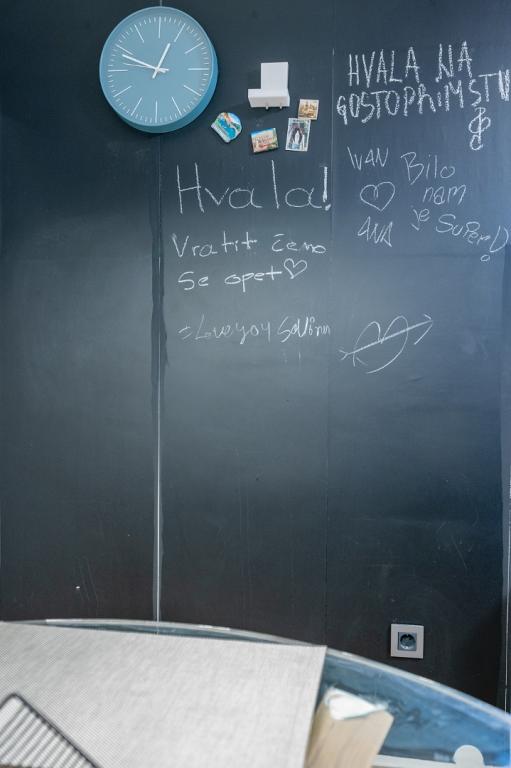 HVALA NA
GOSTOPRIMSTVU
Hvala!
Vratit ćemo
se opet
IVAN
ANA
Bilo
nam
je super!